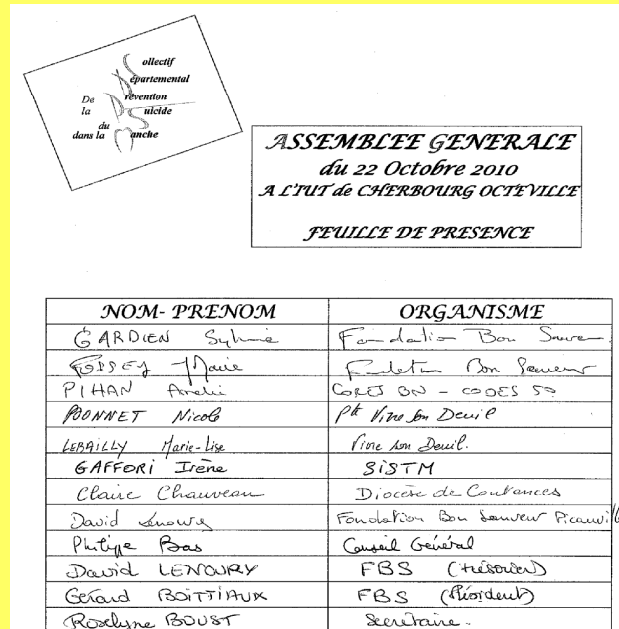 Collectif
Départemental
De Prévention
la Suicide
du
dans la Manche
ASSEMBLEE GENERALE
du 22 Octobre 2010
A L'IUT de CHERBOURG OCTEVILLE
FEUILLE DE PRESENCE
NOM- PRENOM ORGANISME
GARDIEN Sylvie Fondation Bon Sauveur
Marie Fondation Bon Sauveur
PIHAN Amélie CORES BN - CODES 50
BONNET Nicole Pte Vivre Son Deuil
LEBAILLY Marie-Lise Vivre son Deuil.
GAFFORI Irène SISTM
Claire Chauveau Diocèse de Coutances
David Fondation Bon Sauveur Picauville
Philippe Bas Conseil Général
David LENOURY FBS (trésorier)
Gérard BOITTIAUX FBS (Président)
Roselyne BOUST Secrétaire.